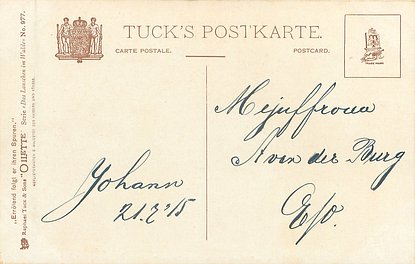 TUCK'S POSTKARTE.
CARTE POSTALE.
POSTCARD.
TRADE MARK
„Errötend folgt er ihren Spuren."
RAPHAEL TUCK & SONS' "OILETTE" Serie «Das Lauschen im Walde» No. 977.
Mejuffrouw
A van der Burg
E/o.
Johann
21.7'15